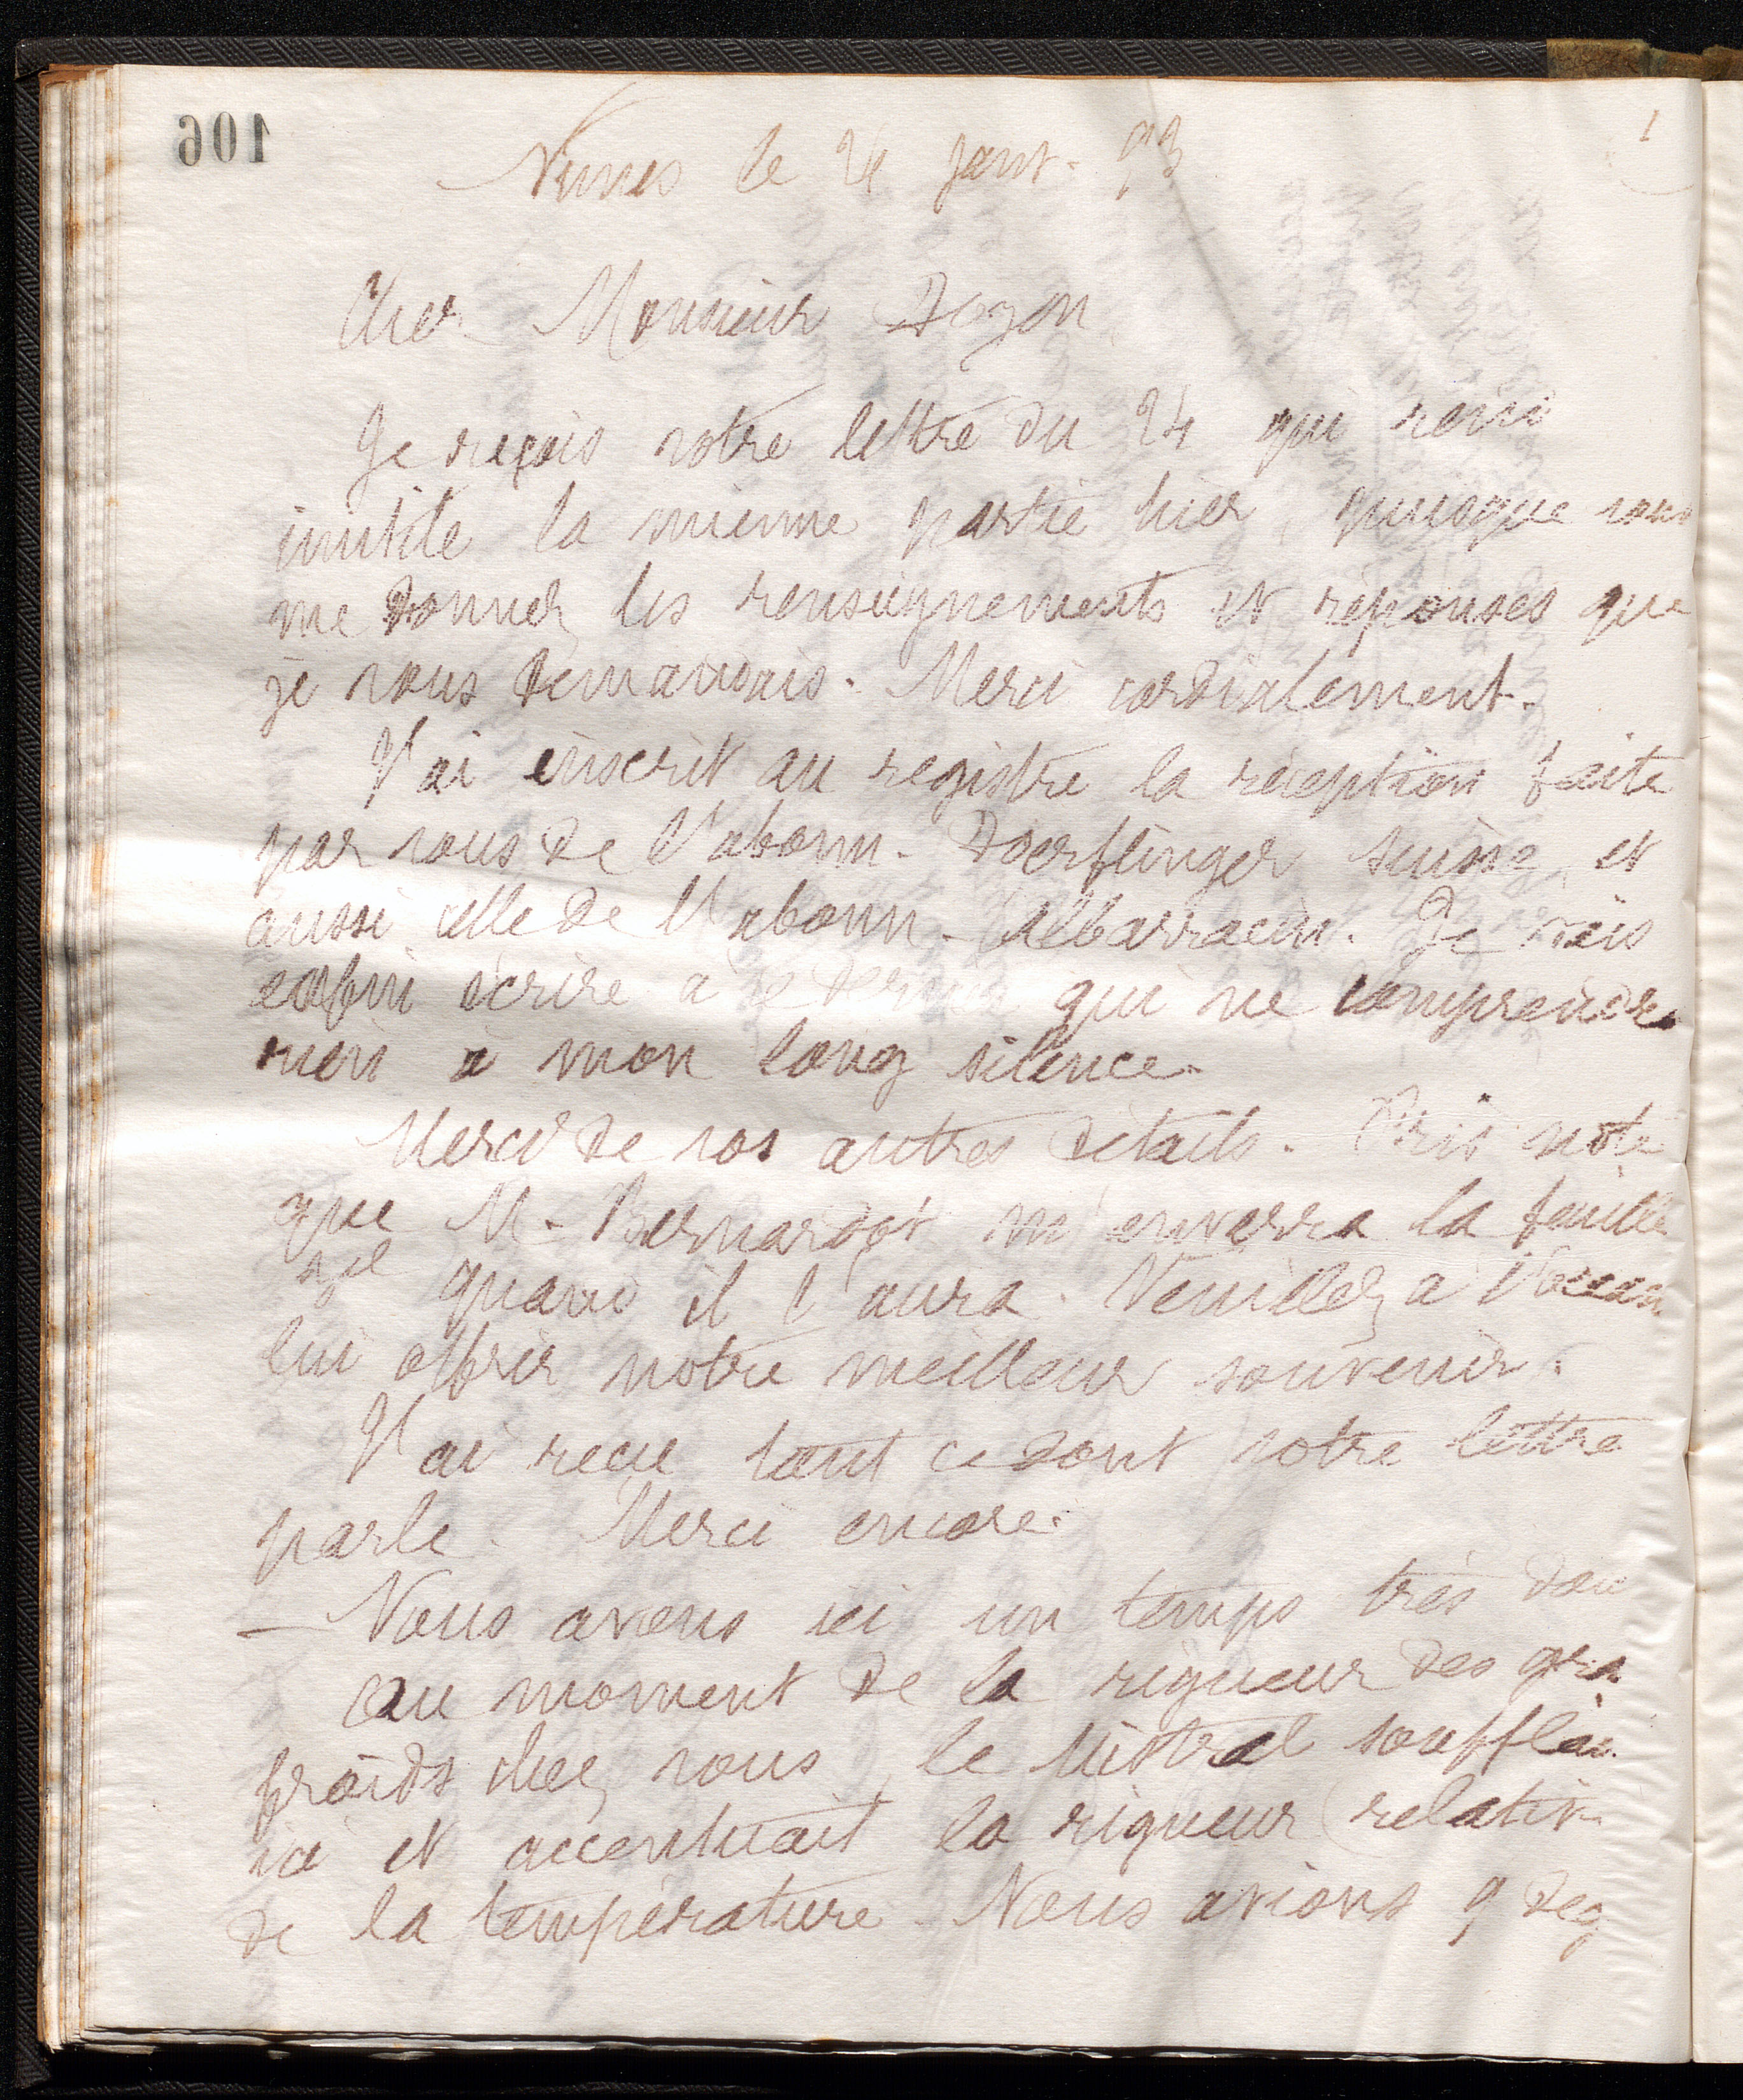 106
1
Nimes le 26 janv. 93
Cher Monsieur Dogon
Je reçois votre lettre du 24 qui rend
inutile la mienne partie hier, puisque vous
me donnez les renseignements et réponses que
je vous demandais. Merci cordialement.
J'ai inscrit au registre la réception faite
par vous de l'abonn. Doerflinger suisse, et
aussi celle de l'abonn. Albarracin. Je vais
enfin écrire à ce dernier qui ne comprendra
rien à mon long silence.
Merci de vos autres détails. Pris note
que M. Bernardot m'enverra la feuille
quand il l'aura. Veuillez à l'occasion
lui offrir notre meilleur souvenir.
J'ai reçu tout ce dont votre lettre
parle. Merci encore.
— Nous avons ici un temps très dou
Au moment de la rigueur des gra
froids chez vous, le Mistral soufflai
ici et accentuait la rigueur (relativ
de la température. Nous avions 9 deg